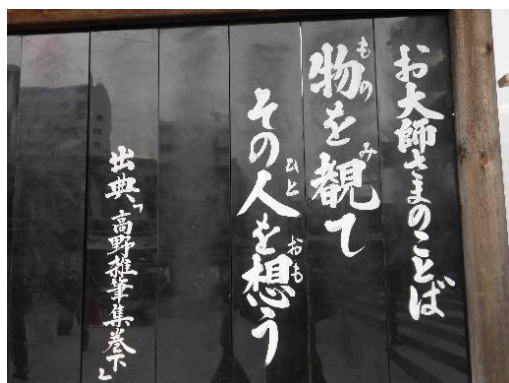 お大師さまのことば
物を観て
その人を想う
出典「高野雑筆集巻下」